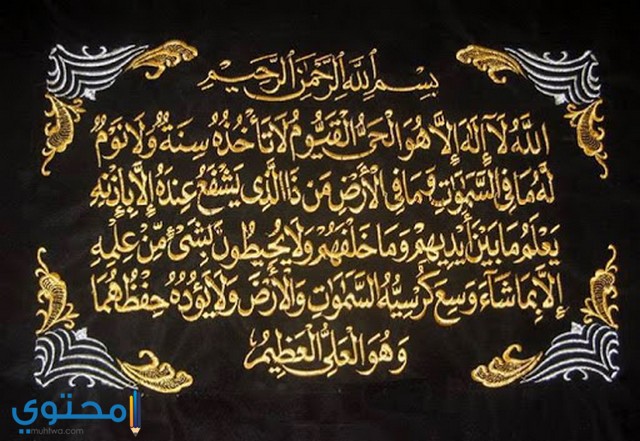 بِسْمِ اللَّهِ الرَّحْمَٰنِ الرَّحِيمِ
اللَّهُ لَا إِلَٰهَ إِلَّا هُوَ الْحَيُّ الْقَيُّومُ لَا تَأْخُذُهُ سِنَةٌ وَلَا نَوْمٌ
لَهُ مَا فِي السَّمَٰوَاتِ وَمَا فِي الْأَرْضِ مَن ذَا الَّذِي يَشْفَعُ عِندَهُ إِلَّا بِإِذْنِهِ
يَعْلَمُ مَا بَيْنَ أَيْدِيهِمْ وَمَا خَلْفَهُمْ وَلَا يُحِيطُونَ بِشَيْءٍ مِّنْ عِلْمِهِ
إِلَّا بِمَا شَاءَ وَسِعَ كُرْسِيُّهُ السَّمَٰوَاتِ وَالْأَرْضَ وَلَا يَئُودُهُ حِفْظُهُمَا
وَهُوَ الْعَلِيُّ الْعَظِيمُ
محتوى
www.muhtwa.com